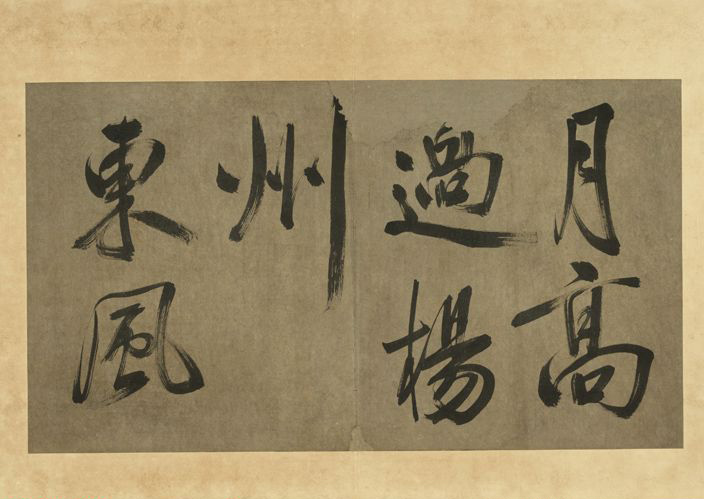 月高
過楊
州
東風